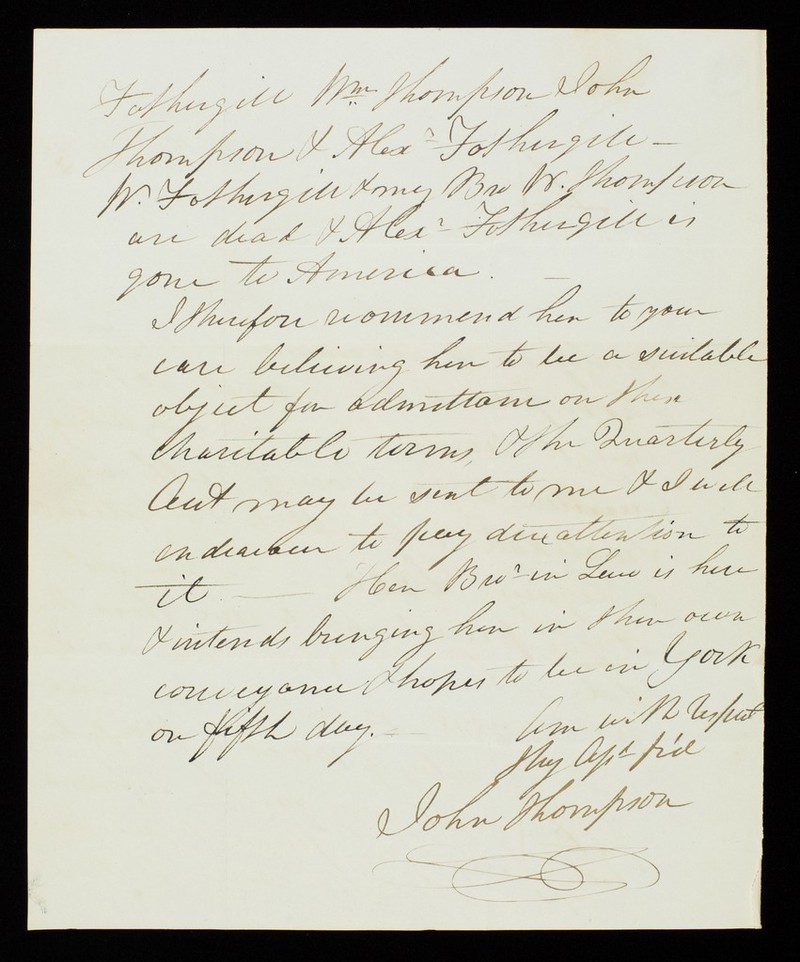 Fothergill Wm Thompson John
Thompson & Alexr Fothergill –
W. Fothergill & my Bror W. Thompson
are dead & Alexr Fothergill is
gone to America. –
I therefore recommend her to your
care believing her to be a suitable
object for admittance on these
charitable terms, & the Quarterly
Acct may be sent to me & I will
endeavour to pay due attention to
it — Her Bror in Law is here
& intends bringing her in their own
conveyance & hopes to be in York
on fifth day. –
Am with respect
thy Afft fr'd
John Thompson